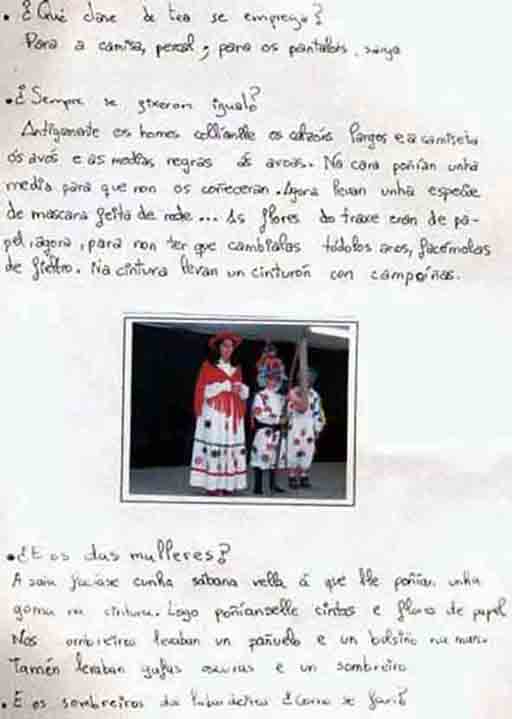 • ¿Qué clase de tea se emprega?
Para a camisa, percal; para os pantalóns, sarga
• ¿Sempre se fixeron igual?
Antigamente os homes collíanlle os calzóns largos e a camiseta
ós avós e as medias negras ás avoas. Na cara poñían unha
media para que non os coñeceran. Agora levan unha especie
de máscara feita de rede... As flores do traxe eran de pa-
pel, agora, para non ter que cambialas tódolos anos, facémolas
de fieltro. Na cintura levan un cinturón con campaíñas.
• ¿E os das mulleres?
A saia facíase cunha sábana vella á que lle poñían unha
goma na cintura. Logo poñíanselle cintas e flores de papel
Nos ombreiros levaban un pañuelo e un bolsiño na man.
Tamén levaban gafas oscuras e un sombreiro
• E os sombreiros da ¿Como se